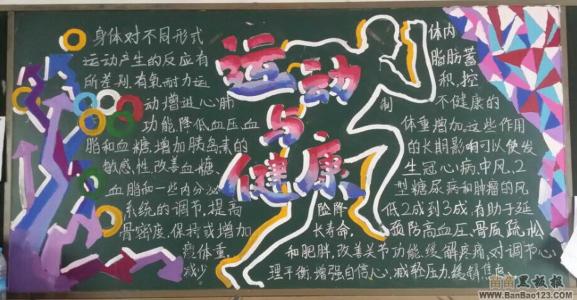 运动
与
健康
身体对不同形式
运动产生的反应有
所差别,有氧耐力运
动增进心肺
功能,降低血压,血
脂和血糖,增加胰岛素的
敏感性,改善血糖
血脂和一些内分泌
系统的调节,提高
骨密度,保持或增加
瘦体重,
减少
体内
脂肪蓄
积,控
制 不健康的
体重增加,这些作用
的长期影响可以使发
生冠心病,中风,2
型糖尿病和肿瘤的风
险降 低2成到3成,有助于延
长寿命, 预防高血压,骨质疏松
和肥胖,改善关节功能,缓解疼痛,对调节心
理平衡,增强自信心,减轻压力,缓
黑板报
www.BanBao123.com